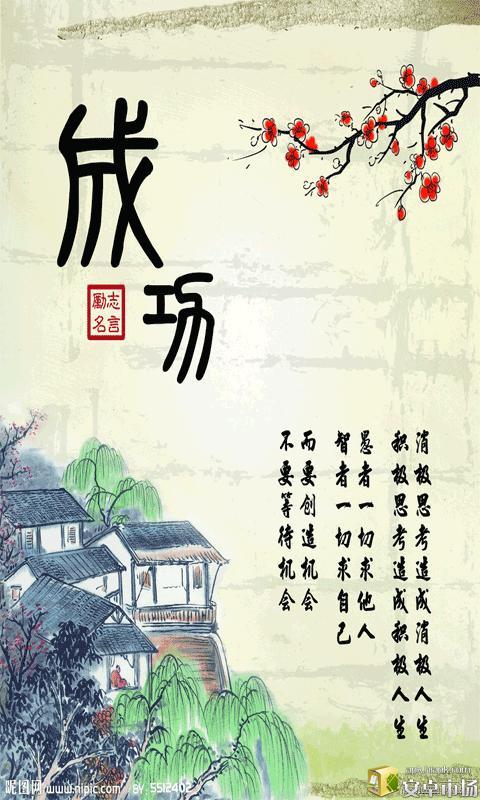 成功
勵志
名言
不要等待机会
而要创造机会
智者一切求自己
愚者一切求他人
积极思考造成积极人生
消极思考造成消极人生
昵图网 www.nipic.com BY: 5512402
安卓市场